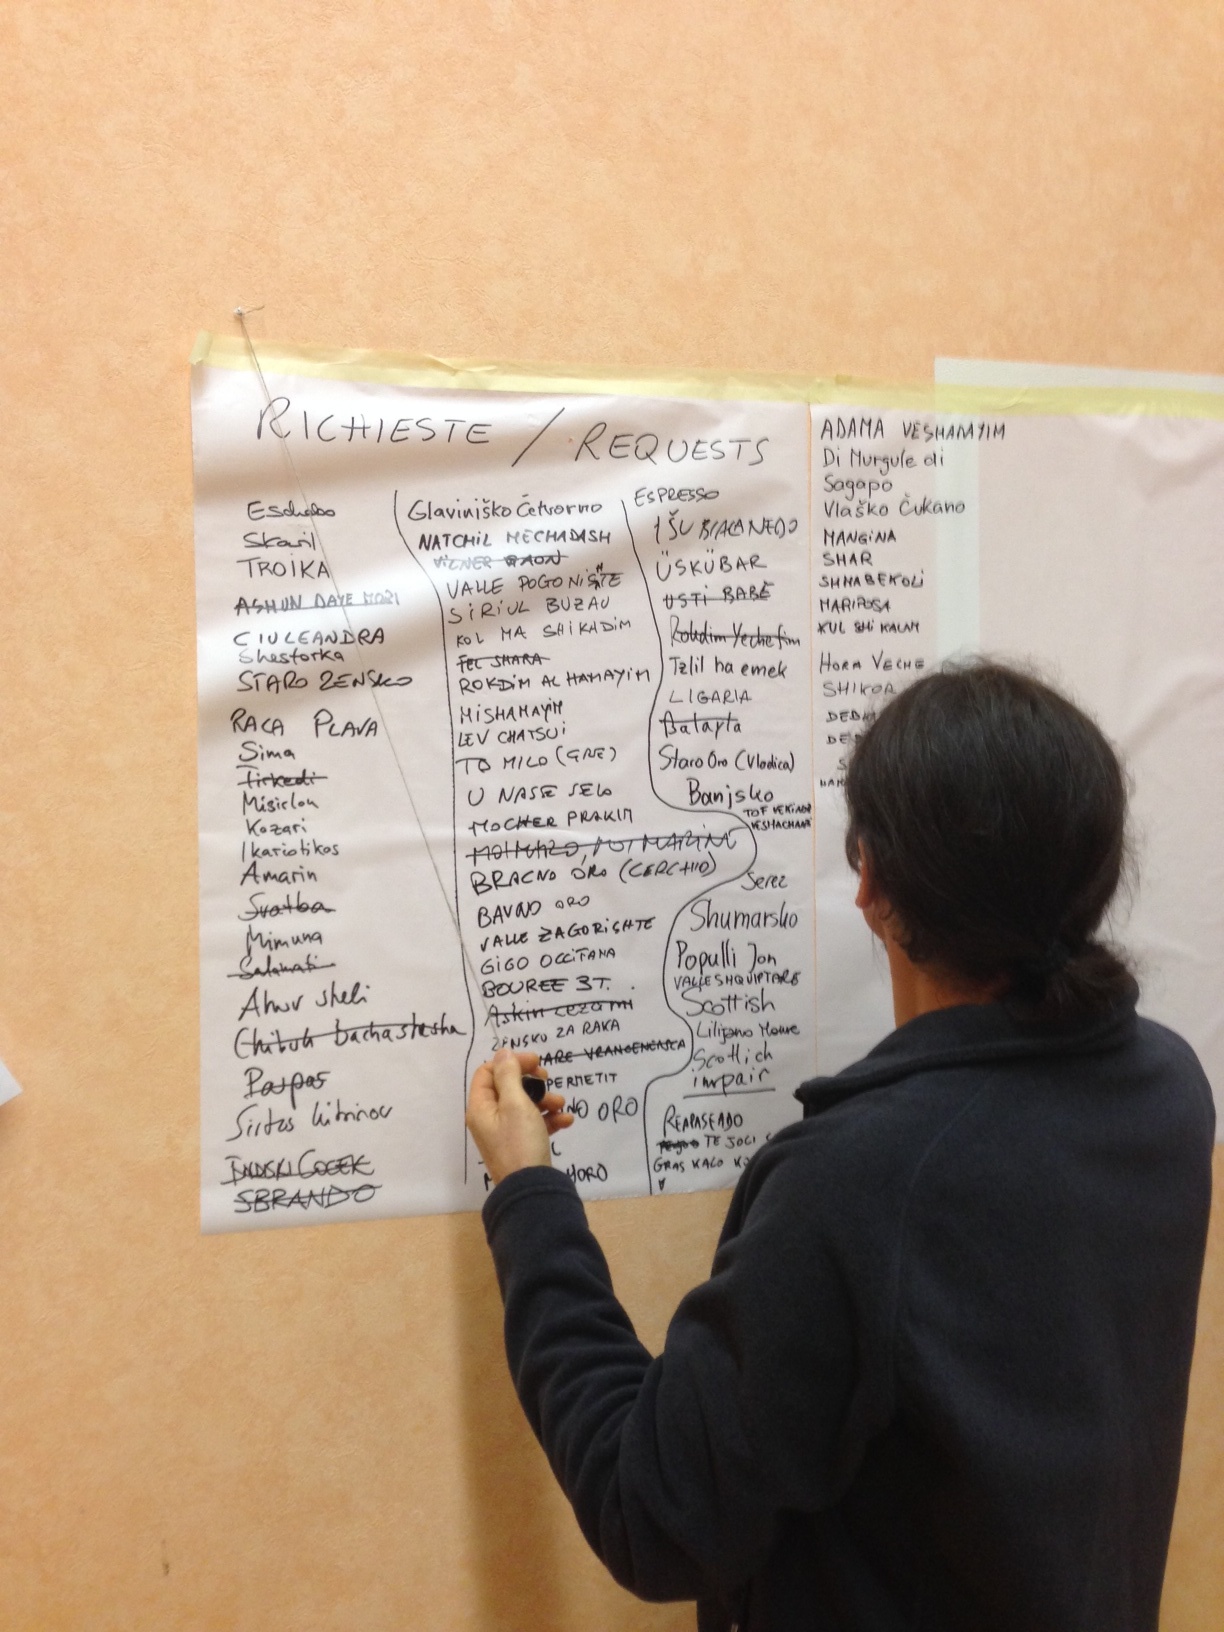 RICHIESTE / REQUESTS
Skaril
TROIKA
ASHUN DAYE MORI
CIULEANDRA
Shestorka
STARO ZENSKO
RACA PLAVA
Sima
Tirkedi
Misirlou
Kozari
Ikariotikos
Amarin
Svatba
Mimuna
Salamati
Ahuv sheli
Chituh bachashesha
Paspas
Sirtos kitrinou
INDSKI COCEK
SBRANDO
Glaviniško Četvorno
NATCHIL MECHADASH
VILNER GAON
VALLE POGONISHTE
SIRIUL BUZAU
KOL MA SHIKHDIM
FEL SHARA
ROKDIM AL HAMAYIM
MISHAMAYIM
LEV CHATSUI
TO MILO (GRE)
U NASE SELO
MOCHER PRAKIM
BRACNO ORO (CERCHIO)
BAVNO ORO
VALLE ZAGORISHTE
GIGO OCCITANA
BOUREE 3T.
Askin cezami
ZENSKO ZA RAKA
ARE VRANCENEASCA
PERMETIT
NO ORO
HORO
ESPRESSO
ÜSKÜBAR
USTI BABÉ
Rokdim Yechefim
Tzlil ha emek
LIGARIA
Batayla
Staro Oro (Vlodica)
Banjsko
Serez
Shumarsko
Populli Jon
VALLE SHQIPTARE
Scottish
Scottich
impair
REAPASEADO
TE JOCI
GRAS KALO
ADAMA VESHAMAYIM
Di Murgule di
Sagapo
Vlaško Čukano
MANGINA
SHAR
SHHABEKOLI
MARIPOSA
KUL SHI KALAM
HORA VECHE
SHIKOR